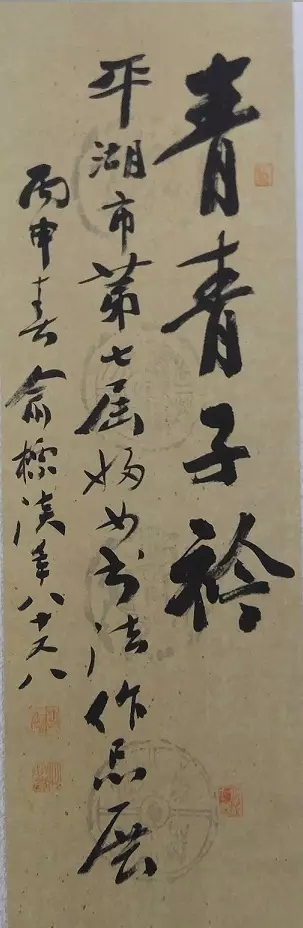 青青子衿
平湖市第七届妇女书法作品展
丙申春俞標漢年八十又八